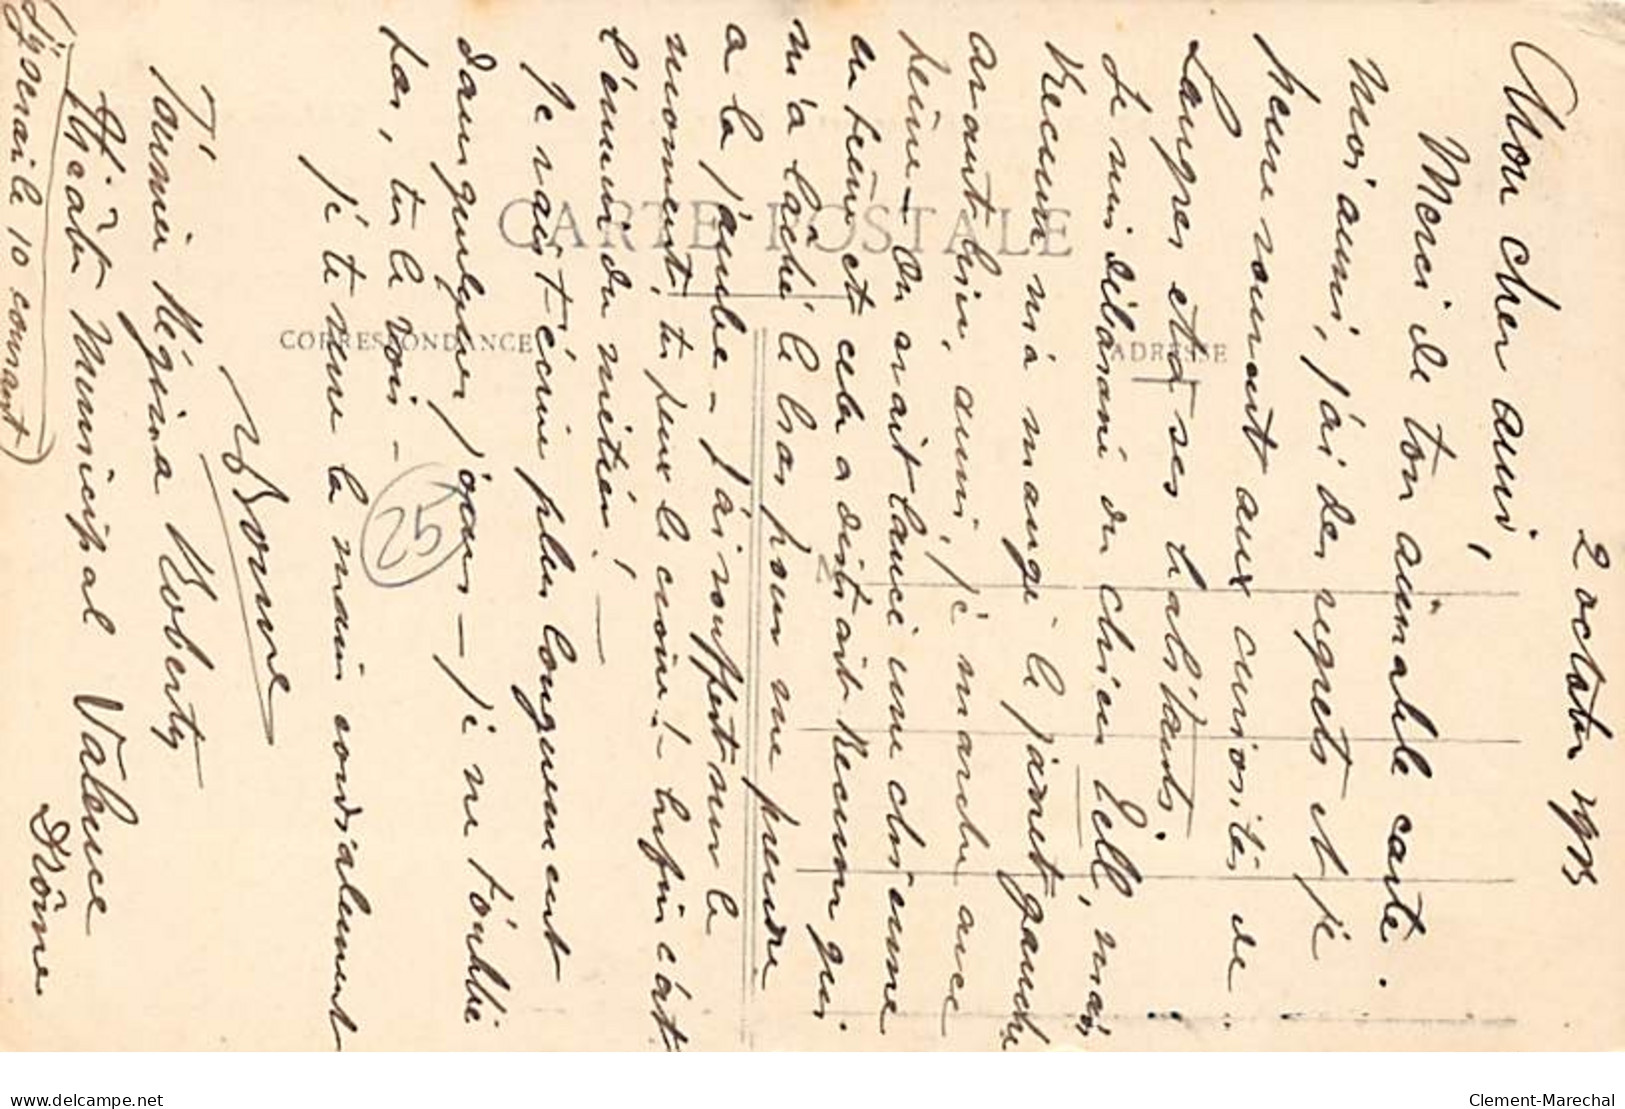 2 octobre
Mon cher ami,
Merci de ton aimable carte.
Moi aussi, j'ai des regrets et je
pense souvent aux curiosités de
Langres et à ses habitants.
Je suis débarassé du chien Tell, mais
Necum m'a mangé le jarret gauche
avant hier, aussi, je marche avec
peine — On avait lancé une chienne
en pénir et cela a distrait Necum qui
m'a lâché le bras pour me prendre
a la jambe — J'ai souffert sur le
moment, tu peux le croire ! — Enfin c'est
l'ennui du métier ! —
Je vais t'écrire plus longuement
dans quelques jours — je ne t'oublie
pas, tu le vois —
je te serre la main cordialement
Tournée Régina
Théâtre Municipal Valence
Drôme
(j'y serai le 10 courant)
25
CARTE POSTALE
CORRESPONDANCE
ADRESSE
www.delcampe.net
Clement-Marechal